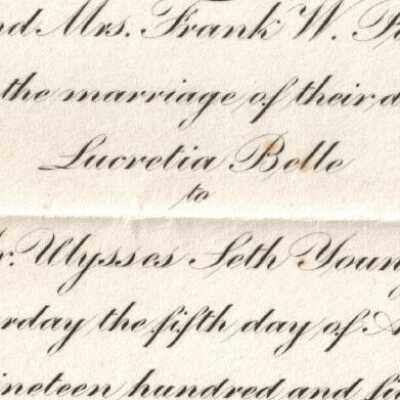 nd Mrs. Frank W. P
the marriage of their d
Lucretia Belle
to
r. Ulysses Seth Young
rday the fifth day of A
ineteen hundred and fi